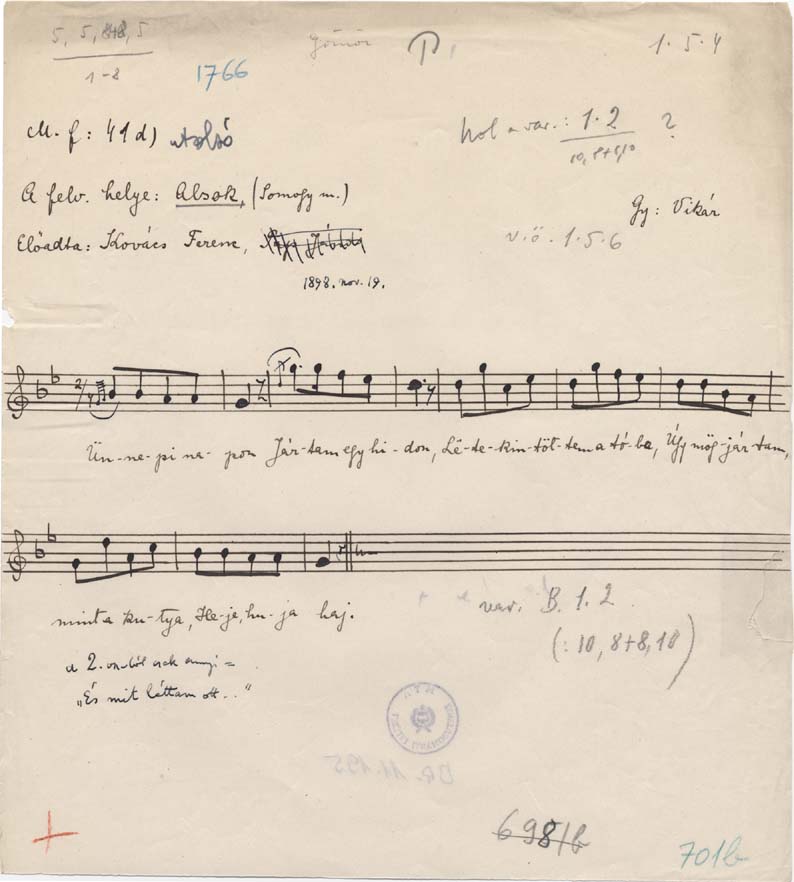 5, 5, 8+8, 5
1-8
1766
Gömör
P,
1.5.4
M. f: 41d) utolsó
Hol a var.: 1.2 ?
10, 8+8, 10
A felv. helye: Alsok, (Somogy m.)
Gy: Vikár
Előadta: Kovács Ferenc,
v.ö. 1.5.6
1898. nov. 19.
2/4
Ün-ne-pi na-pon Jár-tam egy hi-don, Lë-te-kin-töt-tem a tó-ba, Úgy mög-jár-tam,
mint a ku-tya, He-je, hu-ja haj.
a 2. vsz-ból csak ennyi =
„És mit láttam ott.."
var. B. 1.2
(: 10, 8+8, 10)
698/b
701b